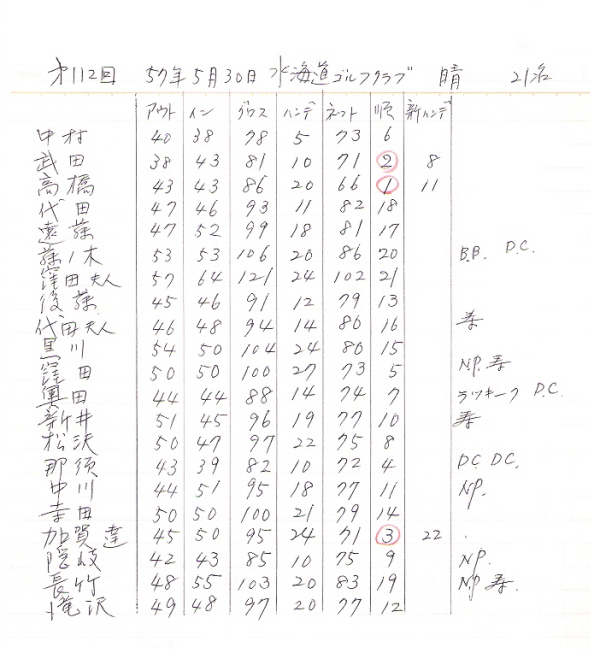 第112回 57年5月30日 水海道ゴルフクラブ 晴 21名
アウト イン グロス ハンデ ネット 順 新ハンデ
中村 40 38 78 5 73 6
武田 38 43 81 10 71 2 8
高橋 43 43 86 20 66 1 11
代田 47 46 93 11 82 18
遠藤 47 52 99 18 81 17
藤ノ木 53 53 106 20 86 20 B.B. D.C.
窪田夫人 57 64 121 24 102 21
後藤 45 46 91 12 79 13
代田夫人 46 48 94 14 80 16 寿
黒川 54 50 104 24 80 15
窪田 50 50 100 27 73 5 NP. 寿
奥田 44 44 88 14 74 7 ラッキー D.C.
新井 51 45 96 19 77 10 寿
松沢 50 47 97 22 75 8
那須 43 39 82 10 72 4 D.C. D.C.
中川 44 51 95 18 77 11 NP.
幸田 50 50 100 21 79 14
加賀達 45 50 95 24 71 3 22
隠岐 42 43 85 10 75 9 NP.
長竹 48 55 103 20 83 19 NP 寿
滝沢 49 48 97 20 77 12